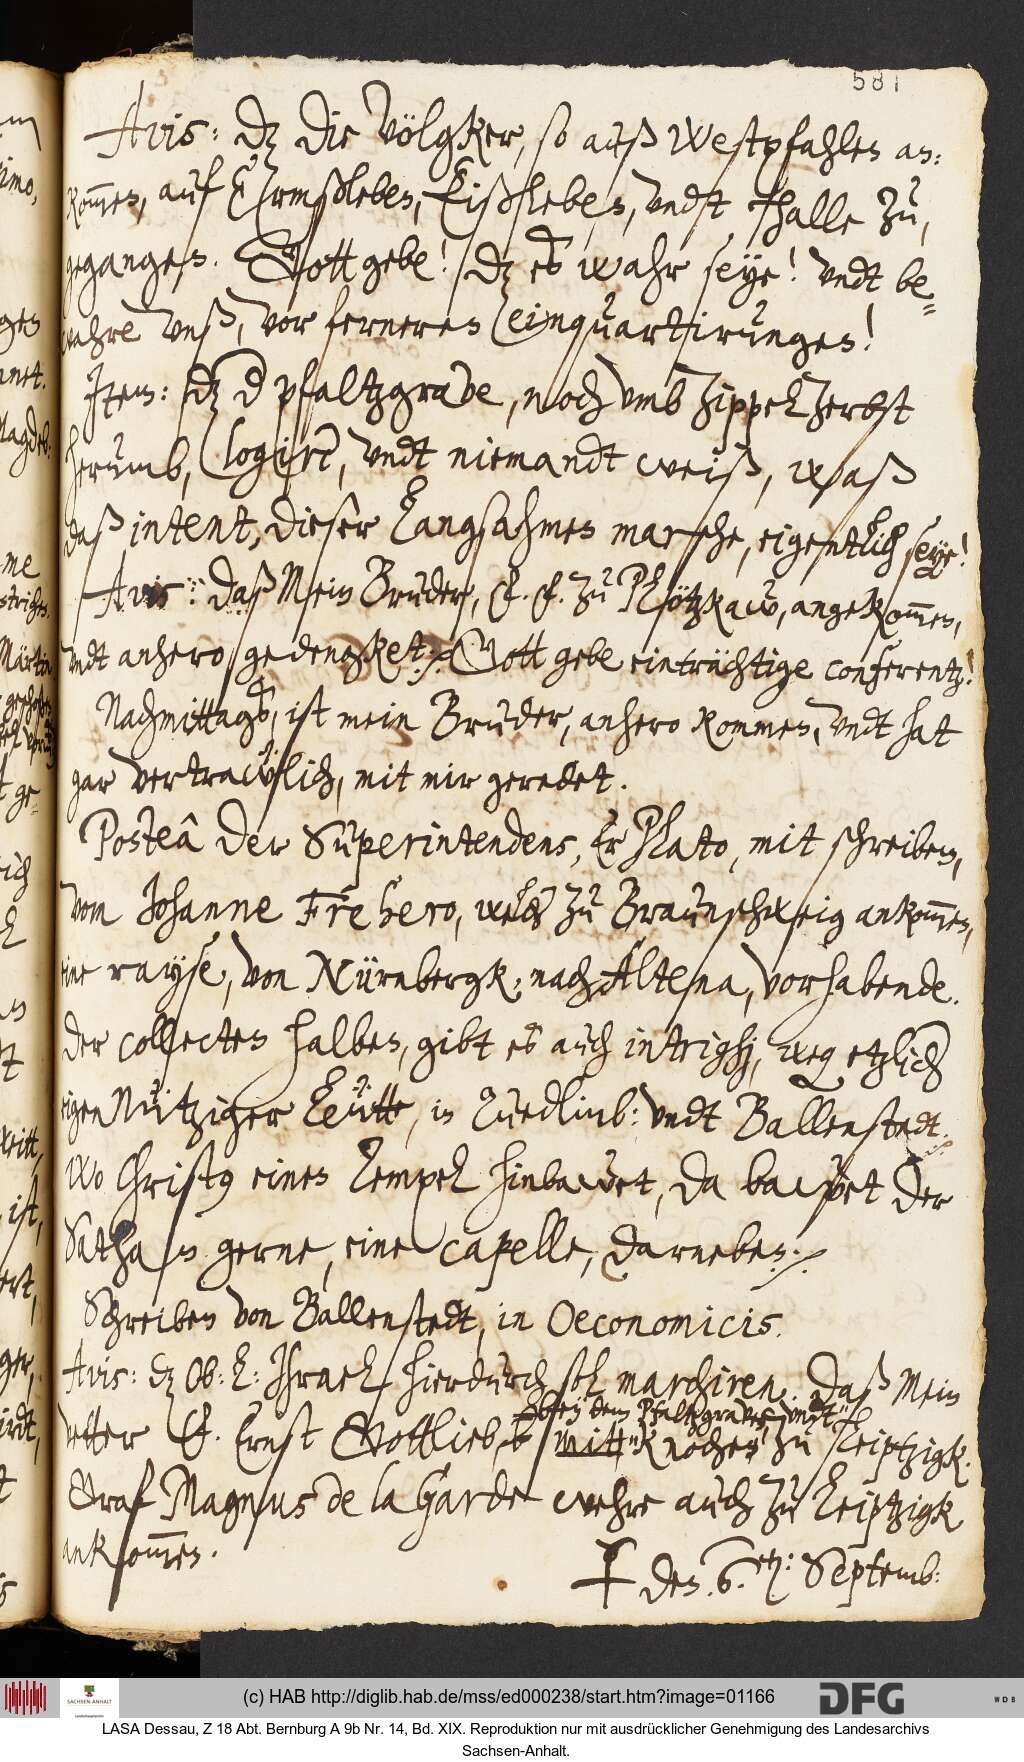 581
Avis: dz die völgker, so auß Westpfahlen an:
kom̄en, auf Ermßleben, Eißleben, undt Halle zu,
gegangen. Gott gebe! dz es wahr seye! undt be=
wahre unß, vor ferneren einquartirungen!
Item: dz d pfaltzgrave, noch umb Zippel Zerbst
herumb, logirt, undt niemandt weiß, waß
daß intent, dieser langsahmen marsche, eigentlich seye!
Avis: daß Mein Bruder, F. F. zu Plötzkaw, angekom̄en,
undt anhero gedencket. Gott gebe einträchtige conferentz!
Nachmittags, ist mein Bruder, anhero kommen, undt hat
gar vertrawlich, mit mir geredet.
Posteâ der Superintendens, Er Plato, mit schreiben,
vom Johanne Frehero, welcher zu Braunschweig ankom̄en,
eine rayse, von Nürnbergk, nach Altena, vorhabende.
der collecten halben, gibt es auch intrighj, weg etzlich
eigen Nütziger Leütte, in Quedlinb: undt Ballenstedt.
Wo Christus einen Tempel hinbawet, da bawet der
Sathan gerne, eine capelle, darneben.
Schreiben von Ballenstedt, in Oeconomicis.
Avis: dz Ob. L: Ißrael hierdurch sol marchiren. Daß Mein
vetter F. Ernst Gottlieb, bey dem Pfaltzgraven, undt
mitt Knochen zu Leiptzigk.
Graf Magnus de la Garde wehre auch zu Leiptzigk
ankom̄en.
den 6. ten: Septemb:
(c) HAB http://diglib.hab.de/mss/ed000238/start.htm?image=01166
SACHSEN-ANHALT
DFG
WDB
LASA Dessau, Z 18 Abt. Bernburg A 9b Nr. 14, Bd. XIX. Reproduktion nur mit ausdrücklicher Genehmigung des Landesarchivs
Sachsen-Anhalt.